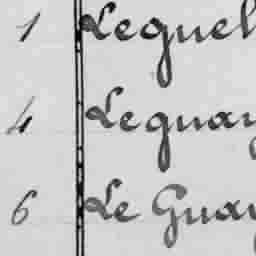 1 Leguel
4 Leguay
6 Le Guay